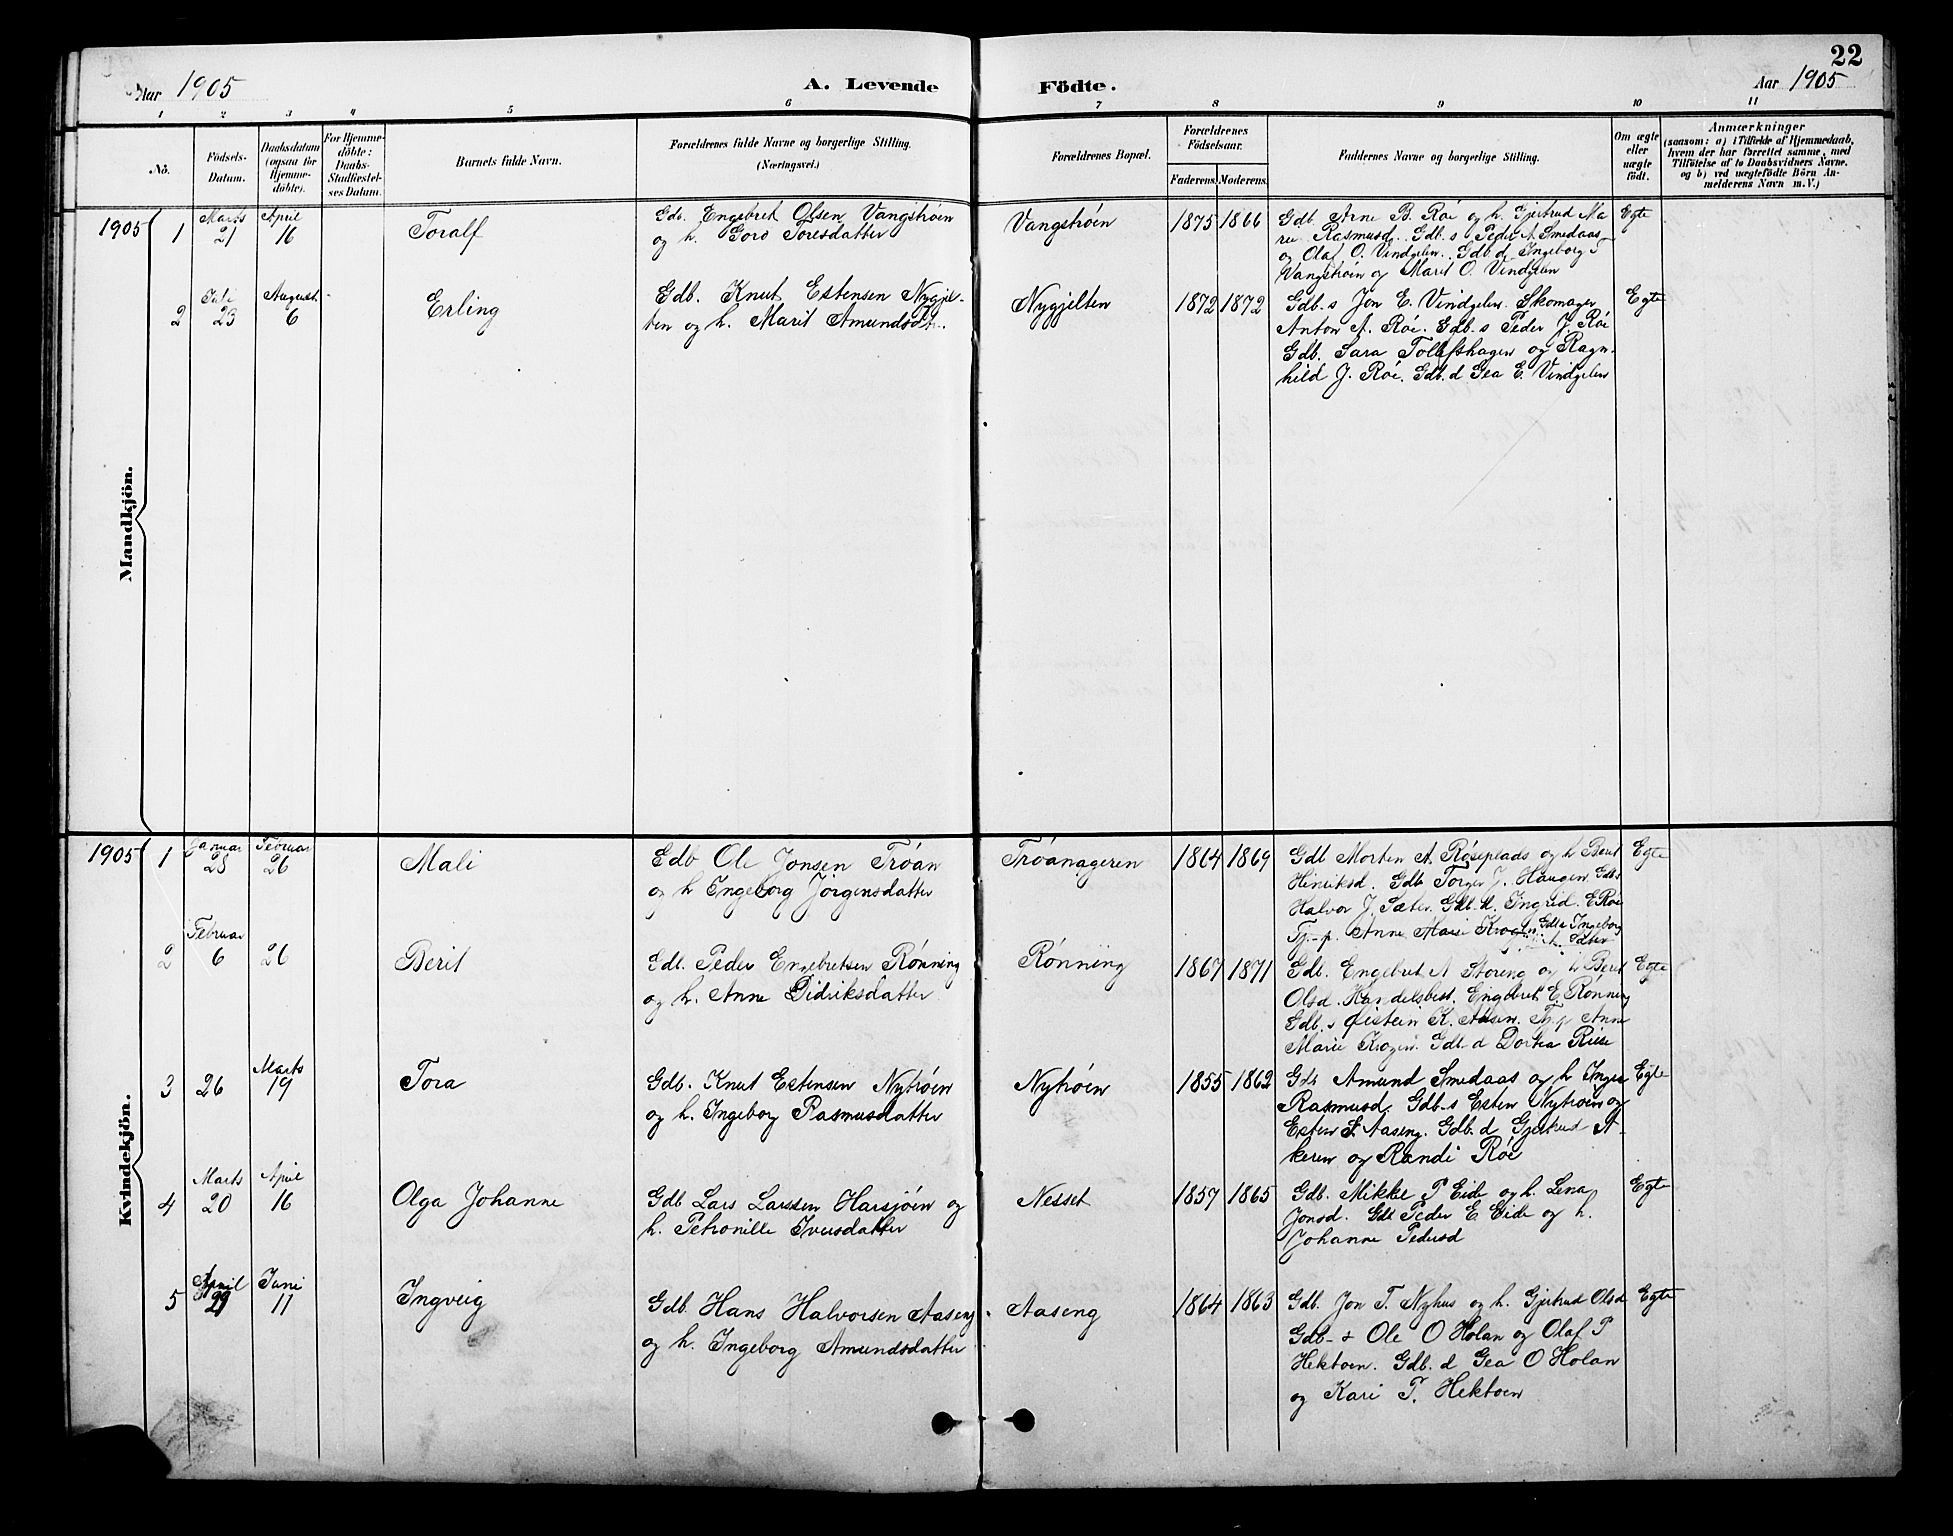 22
Aar 1905
A. Levende
Födte.
Aar 1905
1 2 3 4 5 6 7 8 9 10 11
No.
Födsels-Datum.
Daabsdatum (ogsaa for Hjemmedöbte).
For Hjemmedöbte: Daabs-Stadfæstelses Datum.
Barnets fulde Navn.
Forældrenes fulde Navne og borgerlige Stilling. (Næringsvei.)
Forældrenes Bopæl.
Forældrenes Födselsaar.
Faderens. Moderens.
Faddernes Navne og borgerlige Stilling.
Om ægte eller uægte födt.
Anmærkninger
(saasom: a) i Tilfælde af Hjemmedaab, hvem der har forrettet samme, med Tilföielse af to Daabsvidners Navne. og b) ved uægtefödte Börn Anmelderens Navn m. V.)
Mandkjön.
1905 1 Marts 21 April 16 Toralf
Gdb. Engebret Olsen Vangstrøen
og h. Goro Toresdatter
Vangstrøen 1875 1866
Gdb. Arne B. Røe og h. Gjertrud Ma
rie Rasmusd. Gdb.s Peder A. Smedaas
og Olaf O. Vindgelen. Gdb.d. Ingeborg T
Vangstrøen og Marit O. Vindgelen
Egte
2 Juli 23 August 6 Erling
Gdb. Knut Estensen Nygjel-
ten og h. Marit Amundsdtr.
Nygjelten 1872 1872
Gdb.s Jon E. Vindgelen. Skomager
Anton A. Røe. Gdb.s Peder J. Røe
Gdb. Sara Tollefshagen og Ragn-
hild J. Røe. Gdb.d Gea E. Vindgelen
Egte
Kvindekjön.
1905 1 Januar 28 Februar 26 Mali
Gdb Ole Jonsen Trøan
og h Ingeborg Jørgensdatter
Trøanageren 1864 1869
Gdb Morten A. Røseplads og h Berit
Henriksd. Gdb Torger J. Haugen Gdb.s
Halvor J. Sæter. Gdb.d. Ingrid E Røe
Tj.-p. Anne Marie Krogen Gdb.d Ingeborg
Egte
2 Februar 6 26 Berit
Gdb. Peder Engebretsen Rønning
og h. Anne Didriksdatter
Rønning 1867 1871
Gdb. Engebret A Storeng og h Berit
Olsd. Handelsbest. Engebret E. Rønning
Gdb.s Øistein K. Aasen. Tj.p Anne
Marie Krogen. Gdb.d Dortea Riise
Egte
3 26 Marts 19 Tora
Gdb. Knut Estensen Nytrøen
og h. Ingeborg Rasmusdatter
Nytrøen 1855 1862
Gdb Amund Smedaas og h Inger
Rasmusd. Gdb.s Esten Nytrøen og
Esten S. Aaseng. Gdb.d Gjertrud A-
keren og Randi Røe
Egte
4 Marts 20 April 16 Olga Johanne
Gdb Lars Larssen Harsjøen og
h. Petronille Iversdatter
Nesset 1857 1865
Gdb. Mikkel P Eide og h. Lena
Jonsd. Gdb Peder E Eide og h.
Johanne Pedersd
Egte
5 April 29 Juni 11 Ingveig
Gdb Hans Halvorsen Aaseng
og h. Ingeborg Amundsdatter
Aaseng 1864 1863
Gdb. Jon T. Nyhus og h. Gjertrud Olsd
Gdb-s Ole O Holan og Olaf P
Hektoen. Gdb.d Gea O Holan
og Kari P. Hektoen
Egte